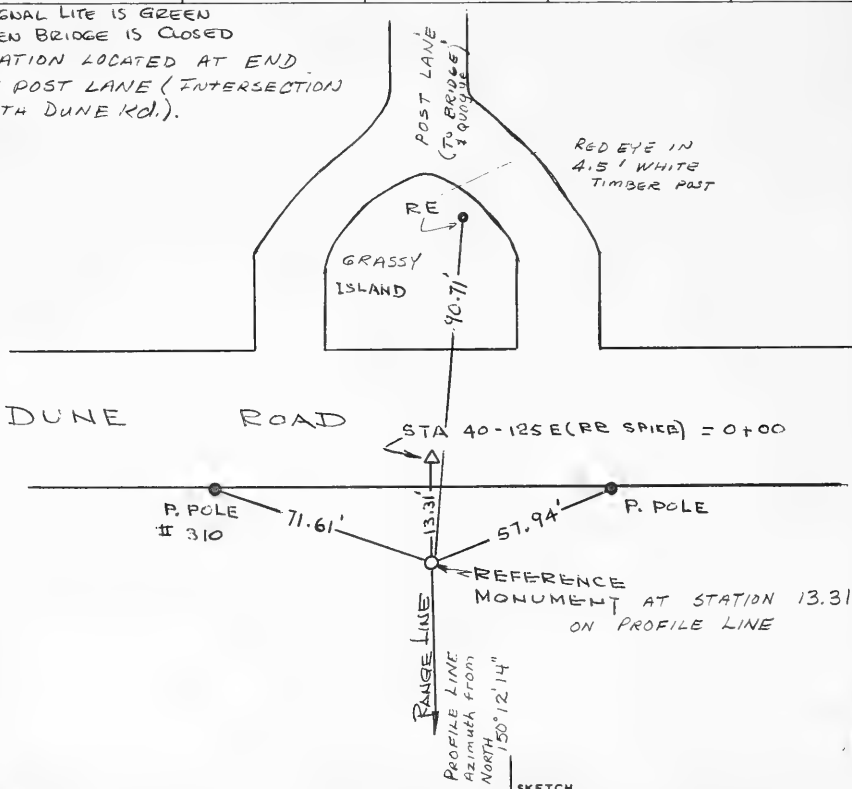 GNAL LITE IS GREEN
EN BRIDGE IS CLOSED
ATION LOCATED AT END
POST LANE (INTERSECTION
TH DUNE Rd.).
POST LANE
(TO BRIDGE
& QUOGUE
RED EYE IN
4.5' WHITE
TIMBER POST
RE
GRASSY
ISLAND
90.71'
DUNE ROAD
STA 40-125 E (RR SPIKE) = 0+00
P. POLE
# 310
71.61'
13.31'
57.94'
P. POLE
REFERENCE
MONUMENT AT STATION 13.31
ON PROFILE LINE
RANGE LINE
PROFILE LINE
Azimuth from
NORTH
150° 12' 14"
SKETCH